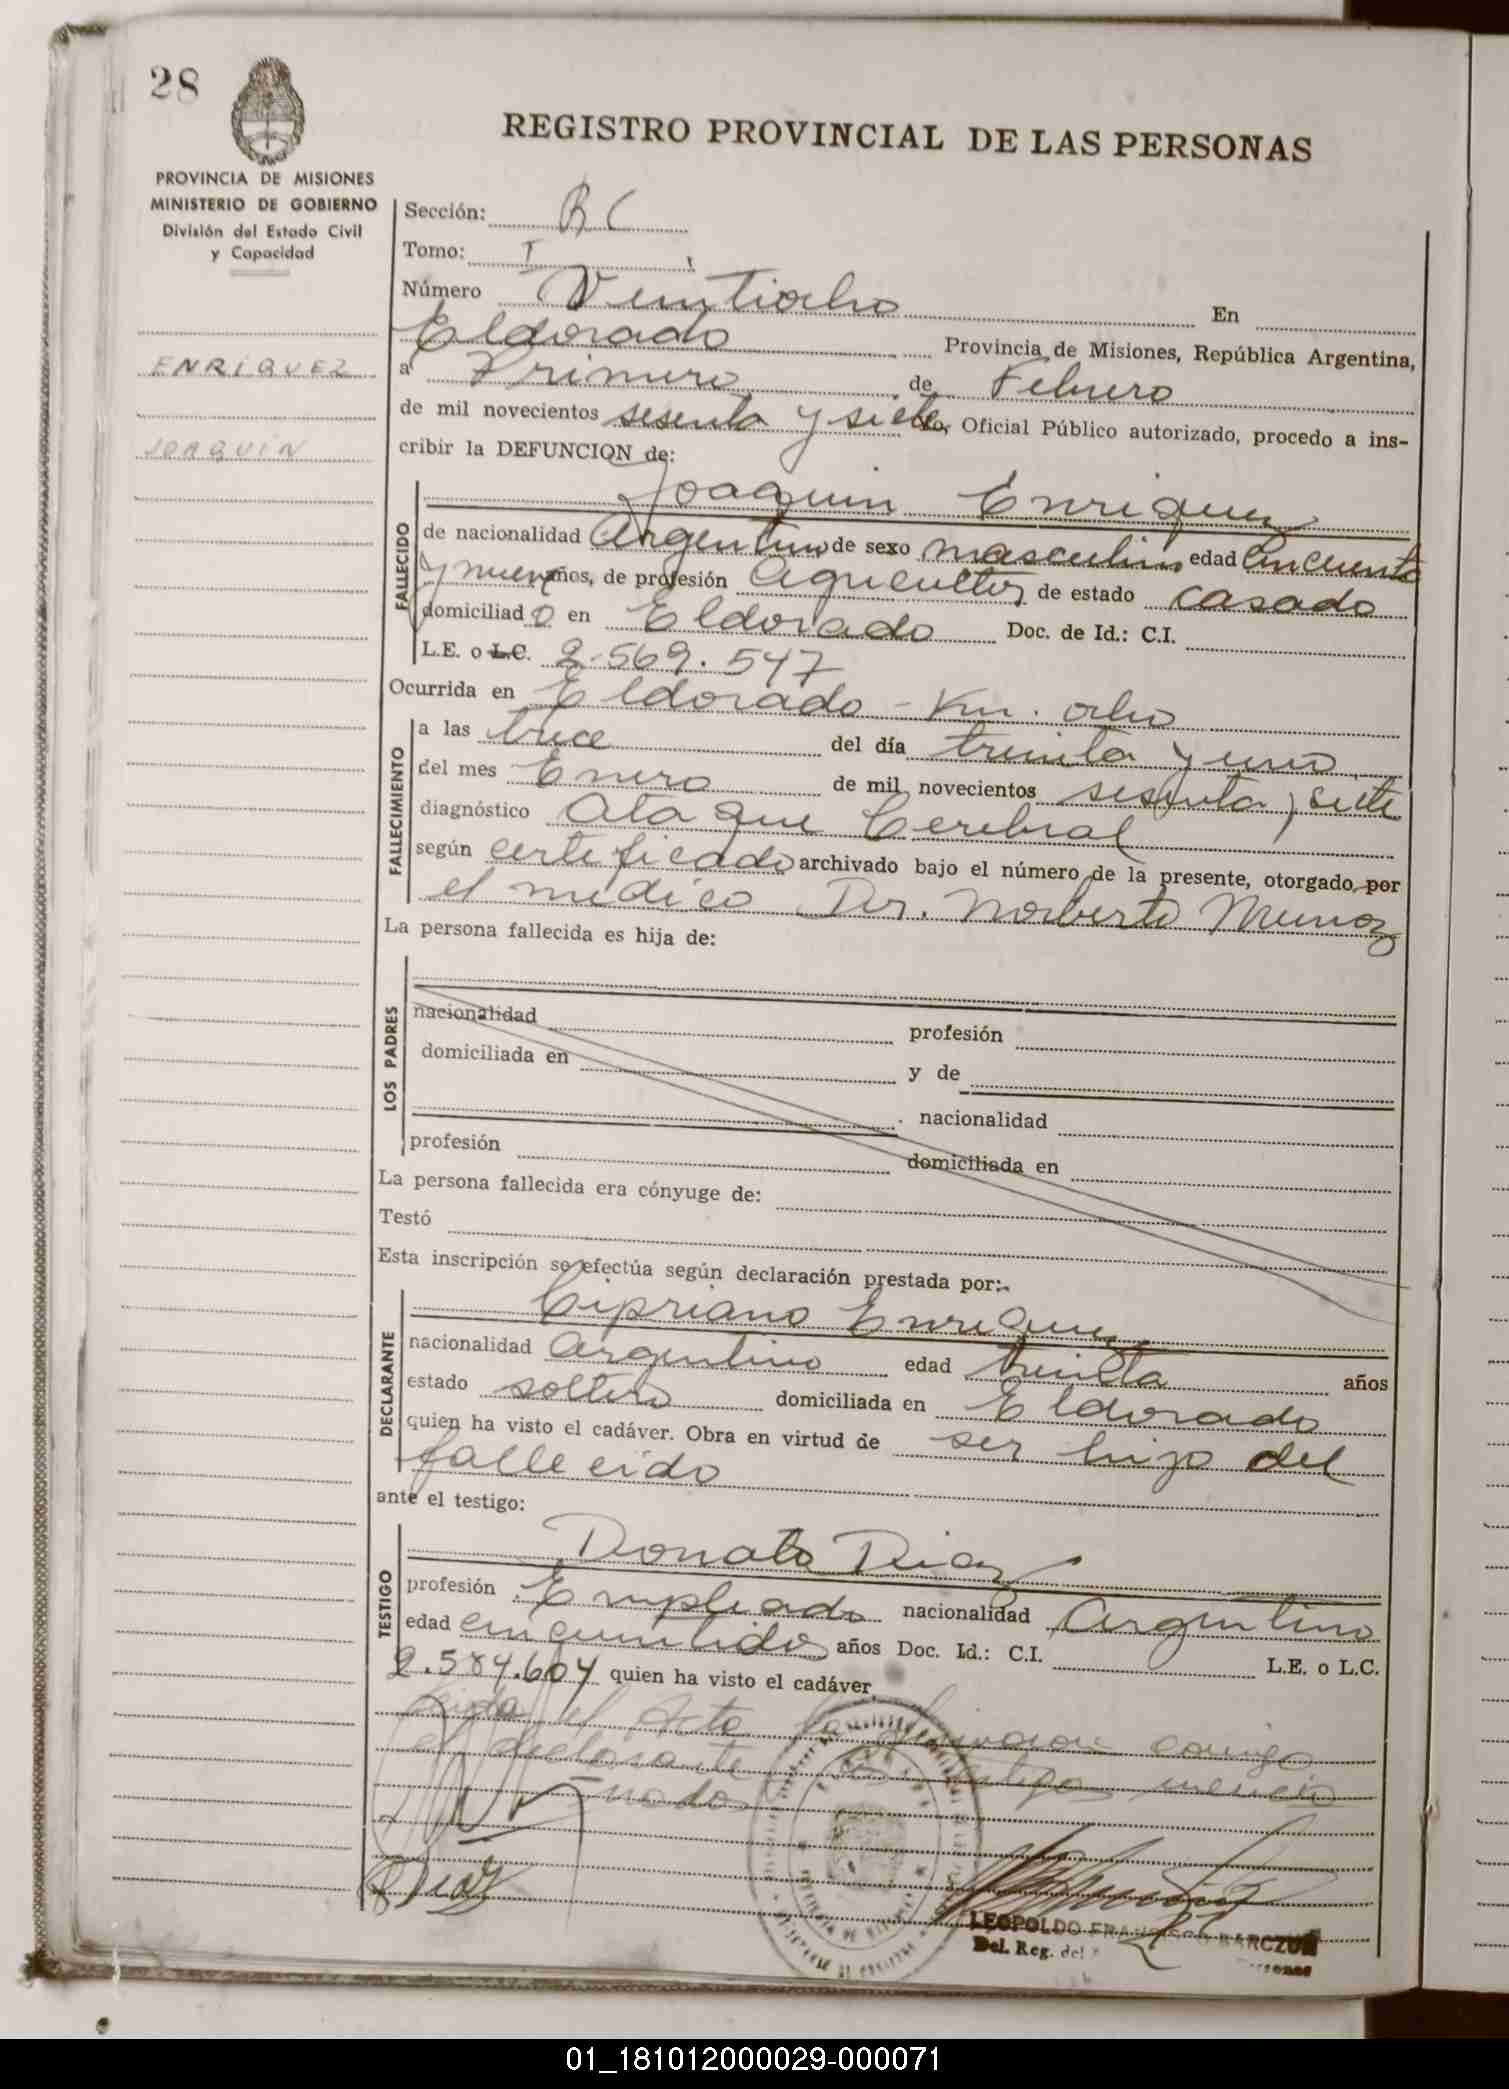 28
REGISTRO PROVINCIAL DE LAS PERSONAS
PROVINCIA DE MISIONES
MINISTERIO DE GOBIERNO
División del Estado Civil
y Capacidad
Sección: B C
Tomo: I
Número Ventiocho En
Eldorado Provincia de Misiones, República Argentina,
ENRIQUEZ
a Primero de Febrero
de mil novecientos sesenta y siete Yo, Oficial Público autorizado, procedo a ins-
JOAQUIN
cribir la DEFUNCION de:
Joaquin Enriquez
FALLECIDO
de nacionalidad Argentino de sexo masculino edad Cincuenta
y nueve años, de profesión Agricultor de estado casado
domiciliado en Eldorado Doc. de Id.: C.I.
L.E. o L.C. 2.569.547
Ocurrida en Eldorado - Km. ocho
FALLECIMIENTO
a las trece del día treinta y uno
del mes Enero de mil novecientos sesenta y siete
diagnóstico Ataque Cerebral
según certificado archivado bajo el número de la presente, otorgado por
el medico Dr. Norberto Munoz
La persona fallecida es hija de:
LOS PADRES
nacionalidad profesión
domiciliada en y de
nacionalidad
profesión domiciliada en
La persona fallecida era cónyuge de:
Testó
Esta inscripción se efectúa según declaración prestada por:-
Cipriano Enriquez
DECLARANTE
nacionalidad Argentino edad treinta años
estado soltero domiciliada en Eldorado
quien ha visto el cadáver. Obra en virtud de ser hijo del
fallecido
ante el testigo:
Donato Diaz
TESTIGO
profesión Empleado nacionalidad Argentino
edad cincuentidos años Doc. Id.: C.I. L.E. o L.C.
2.584.604 quien ha visto el cadáver
Leida el Acta la firmaron conmigo
el declarante y testigo mencio
nados
Diaz
LEOPOLDO FRANCISCO BARCZUK
Del. Reg. del Personas
01_181012000029-000071